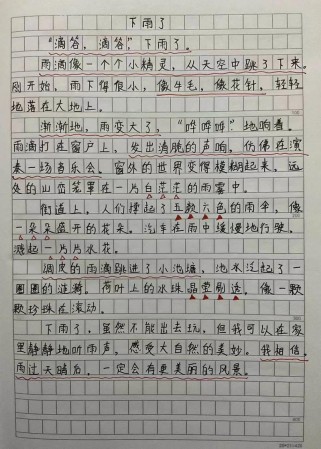 下雨了
“滴答，滴答”，下雨了。
雨滴像一个个小精灵，从天空中跳了下来。
刚开始，雨下得很小，像牛毛，像花针，轻轻
地落在大地上。
渐渐地，雨变大了，“哗哗哗”地响着。
雨滴打在窗户上，发出清脆的声响，仿佛在演
奏一场音乐会。窗外的世界变得模糊起来，远
处的山峦笼罩在一片白茫茫的雨雾中。
街道上，人们撑起了五颜六色的雨伞，像
一朵朵盛开的花朵。汽车在雨中缓慢地行驶，
溅起一片片水花。
调皮的雨滴跳进了小池塘，池水泛起了一
圈圈的涟漪。荷叶上的水珠晶莹剔透，像一颗
颗珍珠在滚动。
下雨了，虽然不能出去玩，但我可以在家
里静静地听雨声，感受大自然的美妙。我相信，
雨过天晴后，一定会有更美丽的风景。